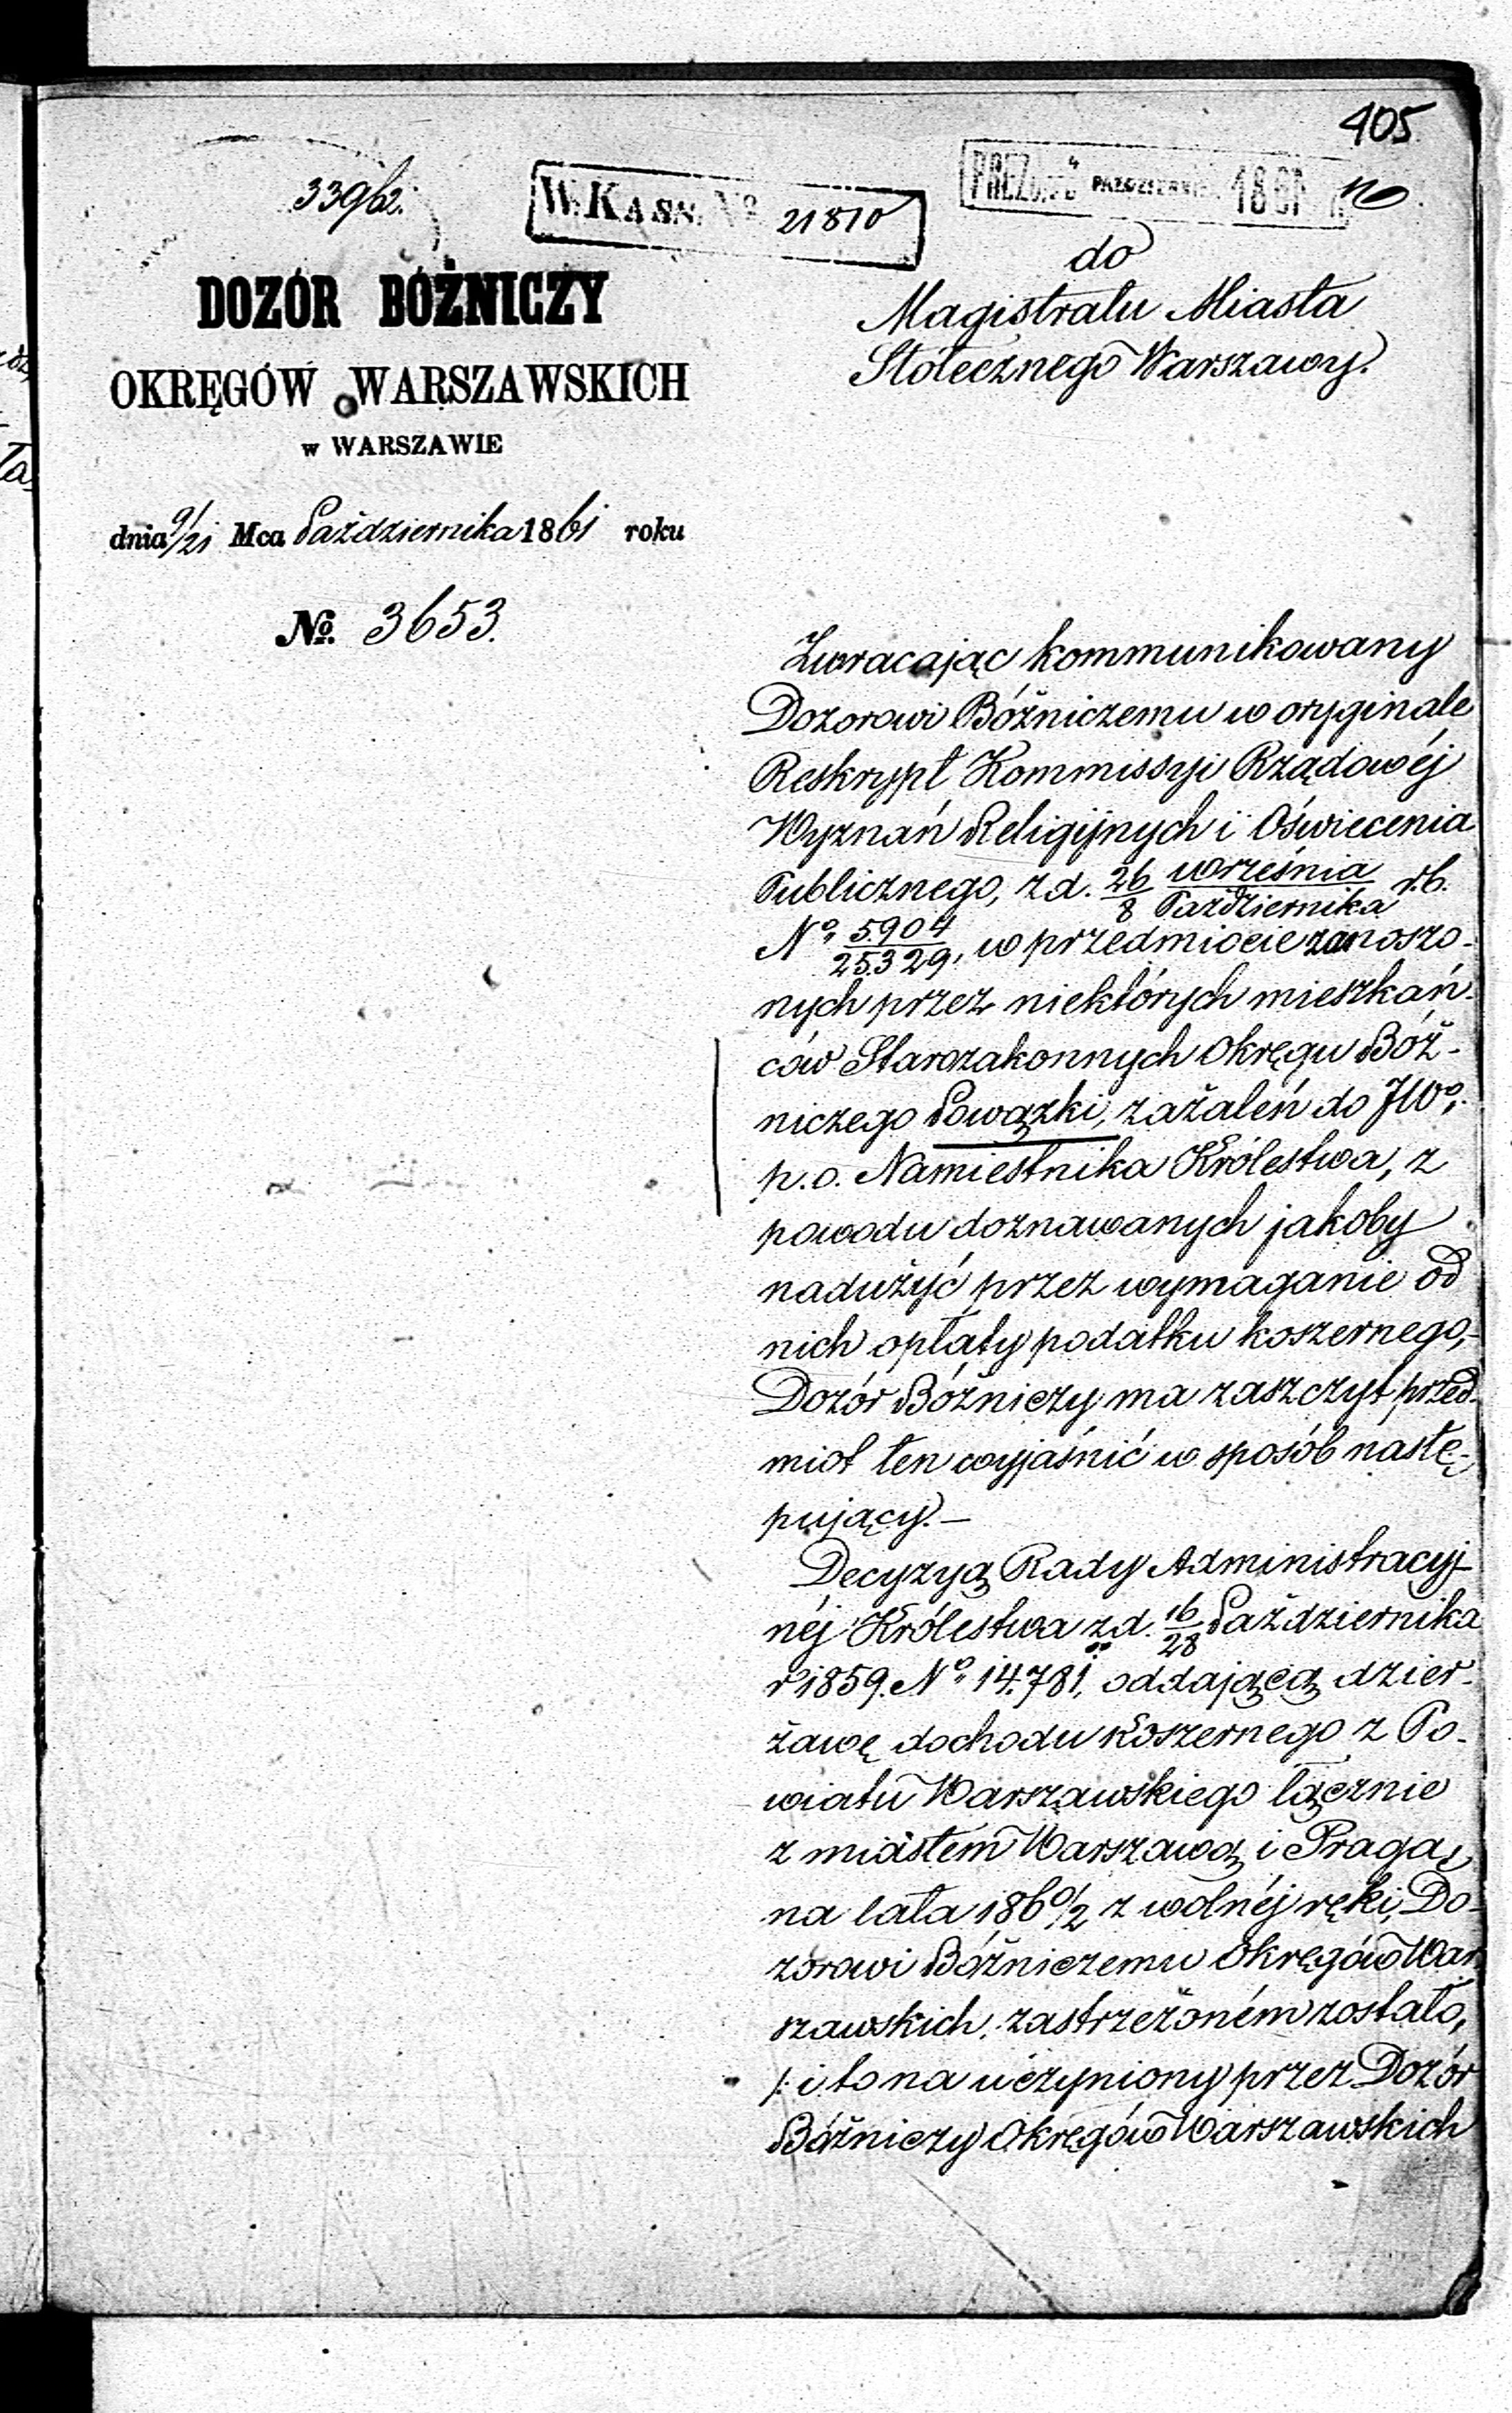 405
339/62.
W. KASS. No 21810
PREZ. PAZDZIERNIK 186
DOZÓR BÓŻNICZY
OKRĘGÓW WARSZAWSKICH
w WARSZAWIE
dnia 9/21 Mca Października 1861 roku
No. 3653.
do
Magistratu Miasta
Stołecznego Warszawy.
Zwracając kommunikowany
Dozorowi Bóżniczemu w oryginale
Reskrypt Kommissyi Rządowéj
Wyznań Religijnych i Oświecenia
Publicznego, z d. 26/8 września/Października r.b.
No 5.904/25.329, w przedmiocie zanoszo-
nych przez niektórych mieszkań-
ców Starozakonnych Okręgu Bóż-
niczego Powązki, zażaleń do JWo
p.o. Namiestnika Królestwa, z
powodu doznawanych jakoby
nadużyć przez wymaganie od
nich opłaty podatku koszernego,-
Dozór Bóżniczy ma zaszczyt przed-
miot ten wyjaśnić w sposób nastę-
pujący.-
Decyzyą Rady Administracyj-
néj Królestwa z d. 16/28 Października
r 1859. No 14.781, oddającą dzier-
żawę dochodu koszernego z Po-
wiatu Warszawskiego łącznie
z miastem Warszawą i Pragą,
na lata 1860/2 z wolnéj ręki, Do-
zorowi Bóżniczemu Okręgów War
szawskich, zastrzeżoném zostało,
/: i to na uczyniony przez Dozór
Bóżniczy Okręgów Warszawskich